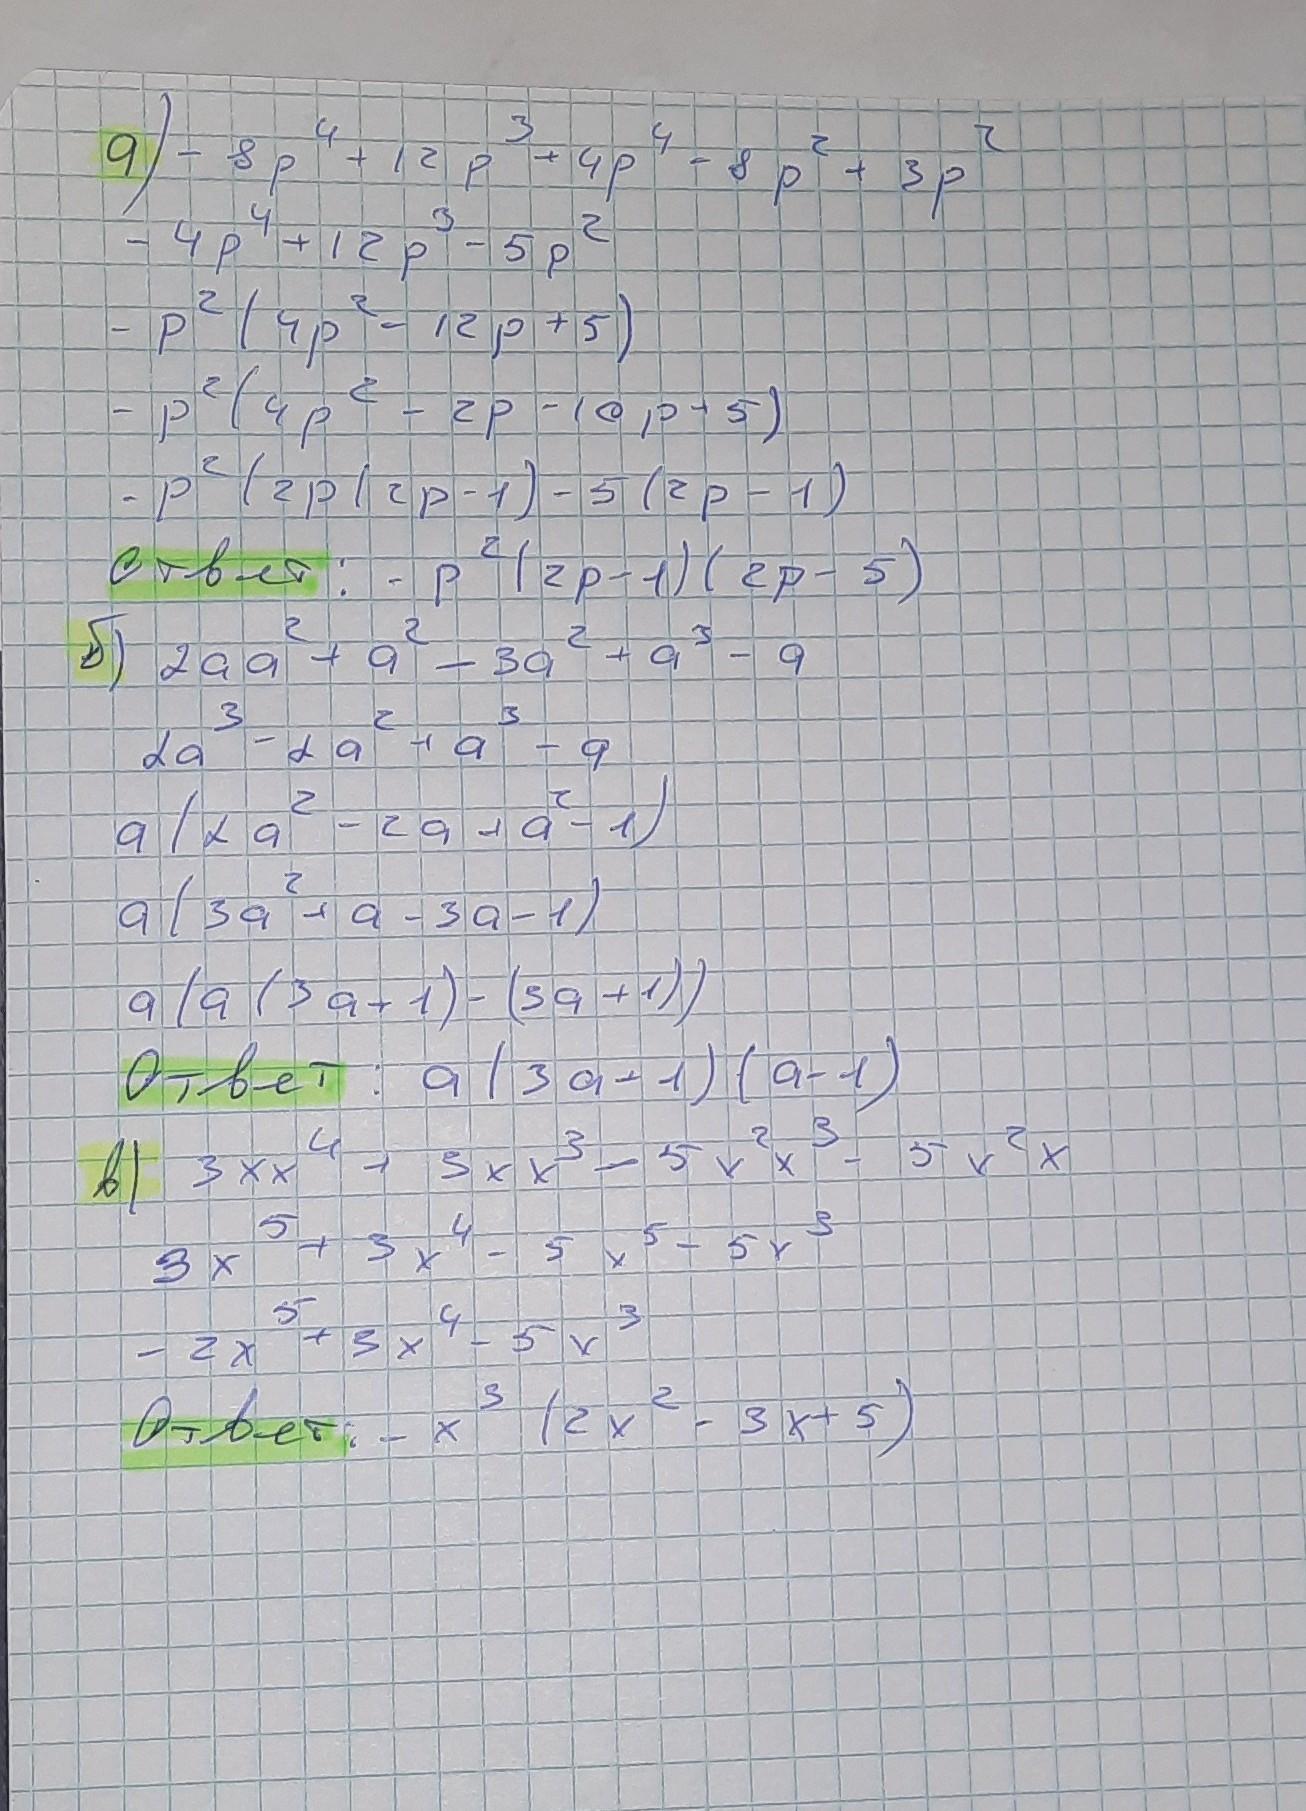 а) - 8p⁴ + 12p³ + 4p⁴ - 8p² + 3p²
- 4p⁴ + 12p³ - 5p²
- p² (4p² - 12p + 5)
- p² (4p² - 2p - 10p + 5)
- p² (2p (2p - 1) - 5 (2p - 1)
Ответ: - p² (2p - 1) (2p - 5)
б) 2aa² + a² - 3a² + a³ - a
2a³ - 2a² + a³ - a
a (2a² - 2a + a² - 1)
a (3a² + a - 3a - 1)
a (a (3a + 1) - (3a + 1))
Ответ: a (3a + 1) (a - 1)
в) 3xx⁴ + 3xx³ - 5x²x³ - 5x²x
3x⁵ + 3x⁴ - 5x⁵ - 5x³
- 2x⁵ + 3x⁴ - 5x³
Ответ: - x³ (2x² - 3x + 5)